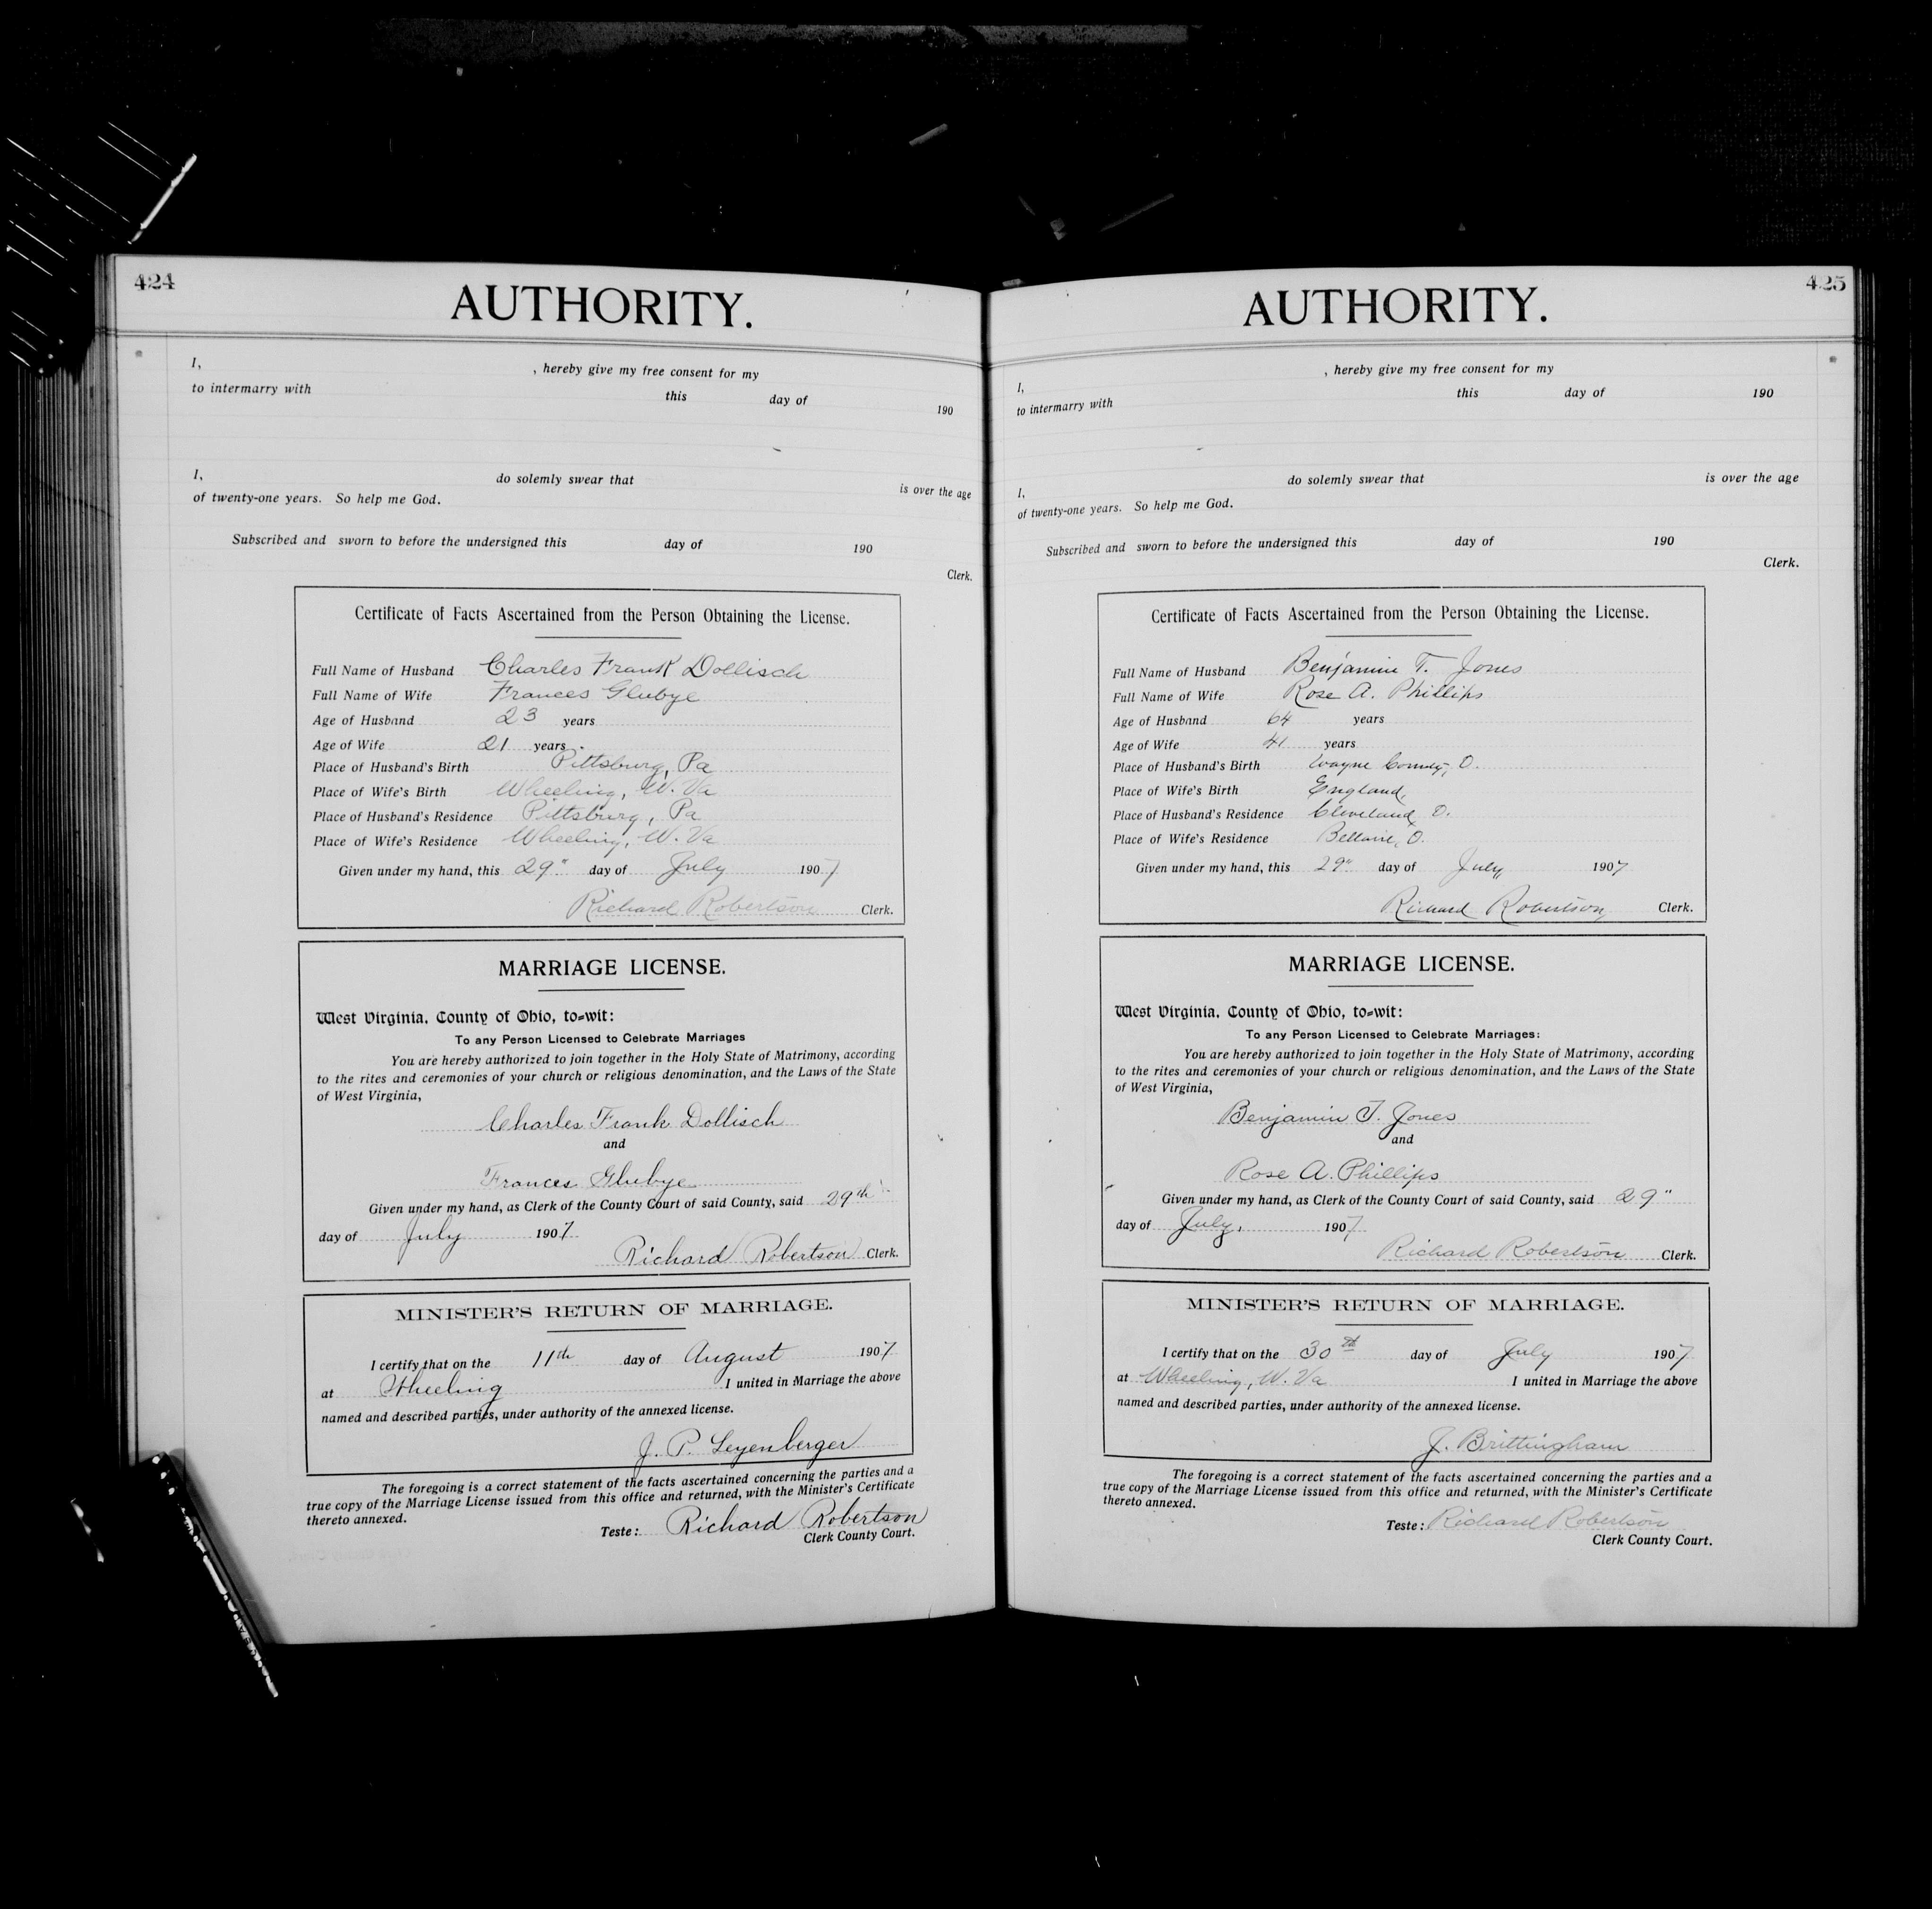 424
AUTHORITY.
I, , hereby give my free consent for my
to intermarry with this day of 190
I, do solemly swear that is over the age
of twenty-one years. So help me God.
Subscribed and sworn to before the undersigned this day of 190
Clerk.
Certificate of Facts Ascertained from the Person Obtaining the License.
Full Name of Husband Charles Frank Dollisch
Full Name of Wife Frances Glubye
Age of Husband 23 years
Age of Wife 21 years
Place of Husband's Birth Pittsburg, Pa
Place of Wife's Birth Wheeling, W. Va
Place of Husband's Residence Pittsburg, Pa
Place of Wife's Residence Wheeling, W. Va
Given under my hand, this 29" day of July 1907
Richard Robertson Clerk.
MARRIAGE LICENSE.
West Virginia, County of Ohio, to-wit:
To any Person Licensed to Celebrate Marriages
You are hereby authorized to join together in the Holy State of Matrimony, according
to the rites and ceremonies of your church or religious denomination, and the Laws of the State
of West Virginia,
Charles Frank Dollisch
and
Frances Glubye
Given under my hand, as Clerk of the County Court of said County, said 29th
day of July 1907
Richard Robertson Clerk.
MINISTER'S RETURN OF MARRIAGE.
I certify that on the 11th day of August 1907
at Wheeling I united in Marriage the above
named and described parties, under authority of the annexed license.
J. P. Leyenberger
The foregoing is a correct statement of the facts ascertained concerning the parties and a
true copy of the Marriage License issued from this office and returned, with the Minister's Certificate
thereto annexed.
Teste: Richard Robertson
Clerk County Court.
425
AUTHORITY.
I, , hereby give my free consent for my
to intermarry with this day of 190
I, do solemly swear that is over the age
of twenty-one years. So help me God.
Subscribed and sworn to before the undersigned this day of 190
Clerk.
Certificate of Facts Ascertained from the Person Obtaining the License.
Full Name of Husband Benjamin T. Jones
Full Name of Wife Rose A. Phillips
Age of Husband 64 years
Age of Wife 41 years
Place of Husband's Birth Wayne County, O.
Place of Wife's Birth England,
Place of Husband's Residence Cleveland, O.
Place of Wife's Residence Bellaire, O.
Given under my hand, this 29" day of July 1907
Richard Robertson Clerk.
MARRIAGE LICENSE.
West Virginia, County of Ohio, to-wit:
To any Person Licensed to Celebrate Marriages:
You are hereby authorized to join together in the Holy State of Matrimony, according
to the rites and ceremonies of your church or religious denomination, and the Laws of the State
of West Virginia,
Benjamin T. Jones
and
Rose A. Phillips
Given under my hand, as Clerk of the County Court of said County, said 29"
day of July, 1907
Richard Robertson Clerk.
MINISTER'S RETURN OF MARRIAGE.
I certify that on the 30th day of July 1907
at Wheeling, W. Va I united in Marriage the above
named and described parties, under authority of the annexed license.
J. Brittingham
The foregoing is a correct statement of the facts ascertained concerning the parties and a
true copy of the Marriage License issued from this office and returned, with the Minister's Certificate
thereto annexed.
Teste: Richard Robertson
Clerk County Court.